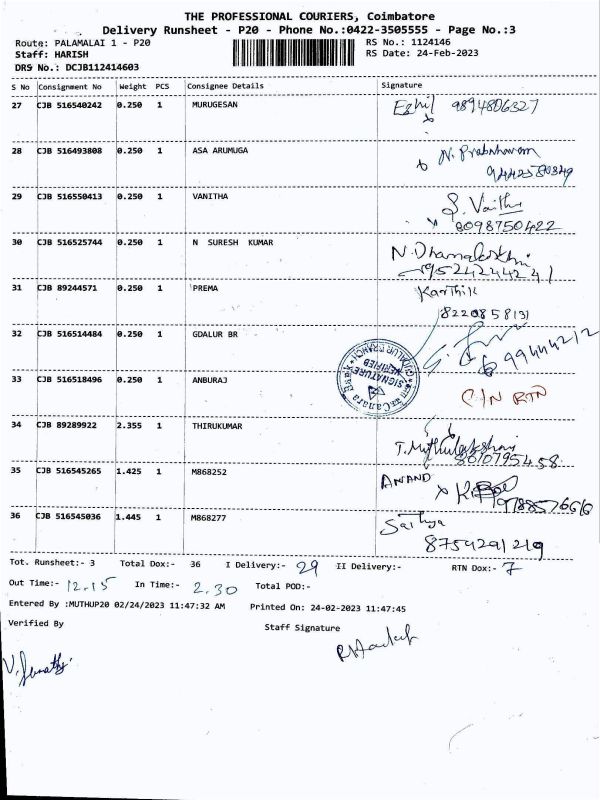 THE PROFESSIONAL COURIERS, Coimbatore
Delivery Runsheet - P20 - Phone No.:0422-3505555 - Page No.:3
Route: PALAMALAI 1 - P20 RS No.: 1124146
Staff: HARISH RS Date: 24-Feb-2023
DRS No.: DCJB112414603
S No Consignment No Weight PCS Consignee Details Signature
27 CJB 516540242 0.250 1 MURUGESAN Ezhil 9894806327
28 CJB 516493808 0.250 1 ASA ARUMUGA N. Prabaharan
29 CJB 516550413 0.250 1 VANITHA S. Vanitha
8098750422
30 CJB 516525744 0.250 1 N SURESH KUMAR N. Dhanalakshmi
9524244241
31 CJB 89244571 0.250 1 PREMA Karthik
8220858131
32 CJB 516514484 0.250 1 GDALUR BR
33 CJB 516518496 0.250 1 ANBURAJ C/N RTN
SIGNATURE VERIFIED
Canara
34 CJB 89289922 2.355 1 THIRUKUMAR T. Muthulakshmi
8010795458
35 CJB 516545265 1.425 1 M868252 ANAND
36 CJB 516545036 1.445 1 M868277 Sathya
8754291219
Tot. Runsheet:- 3 Total Dox:- 36 I Delivery:- 29 II Delivery:- RTN Dox:- 7
Out Time:- 12.15 In Time:- 2.30 Total POD:-
Entered By :MUTHUP20 02/24/2023 11:47:32 AM Printed On: 24-02-2023 11:47:45
Verified By Staff Signature